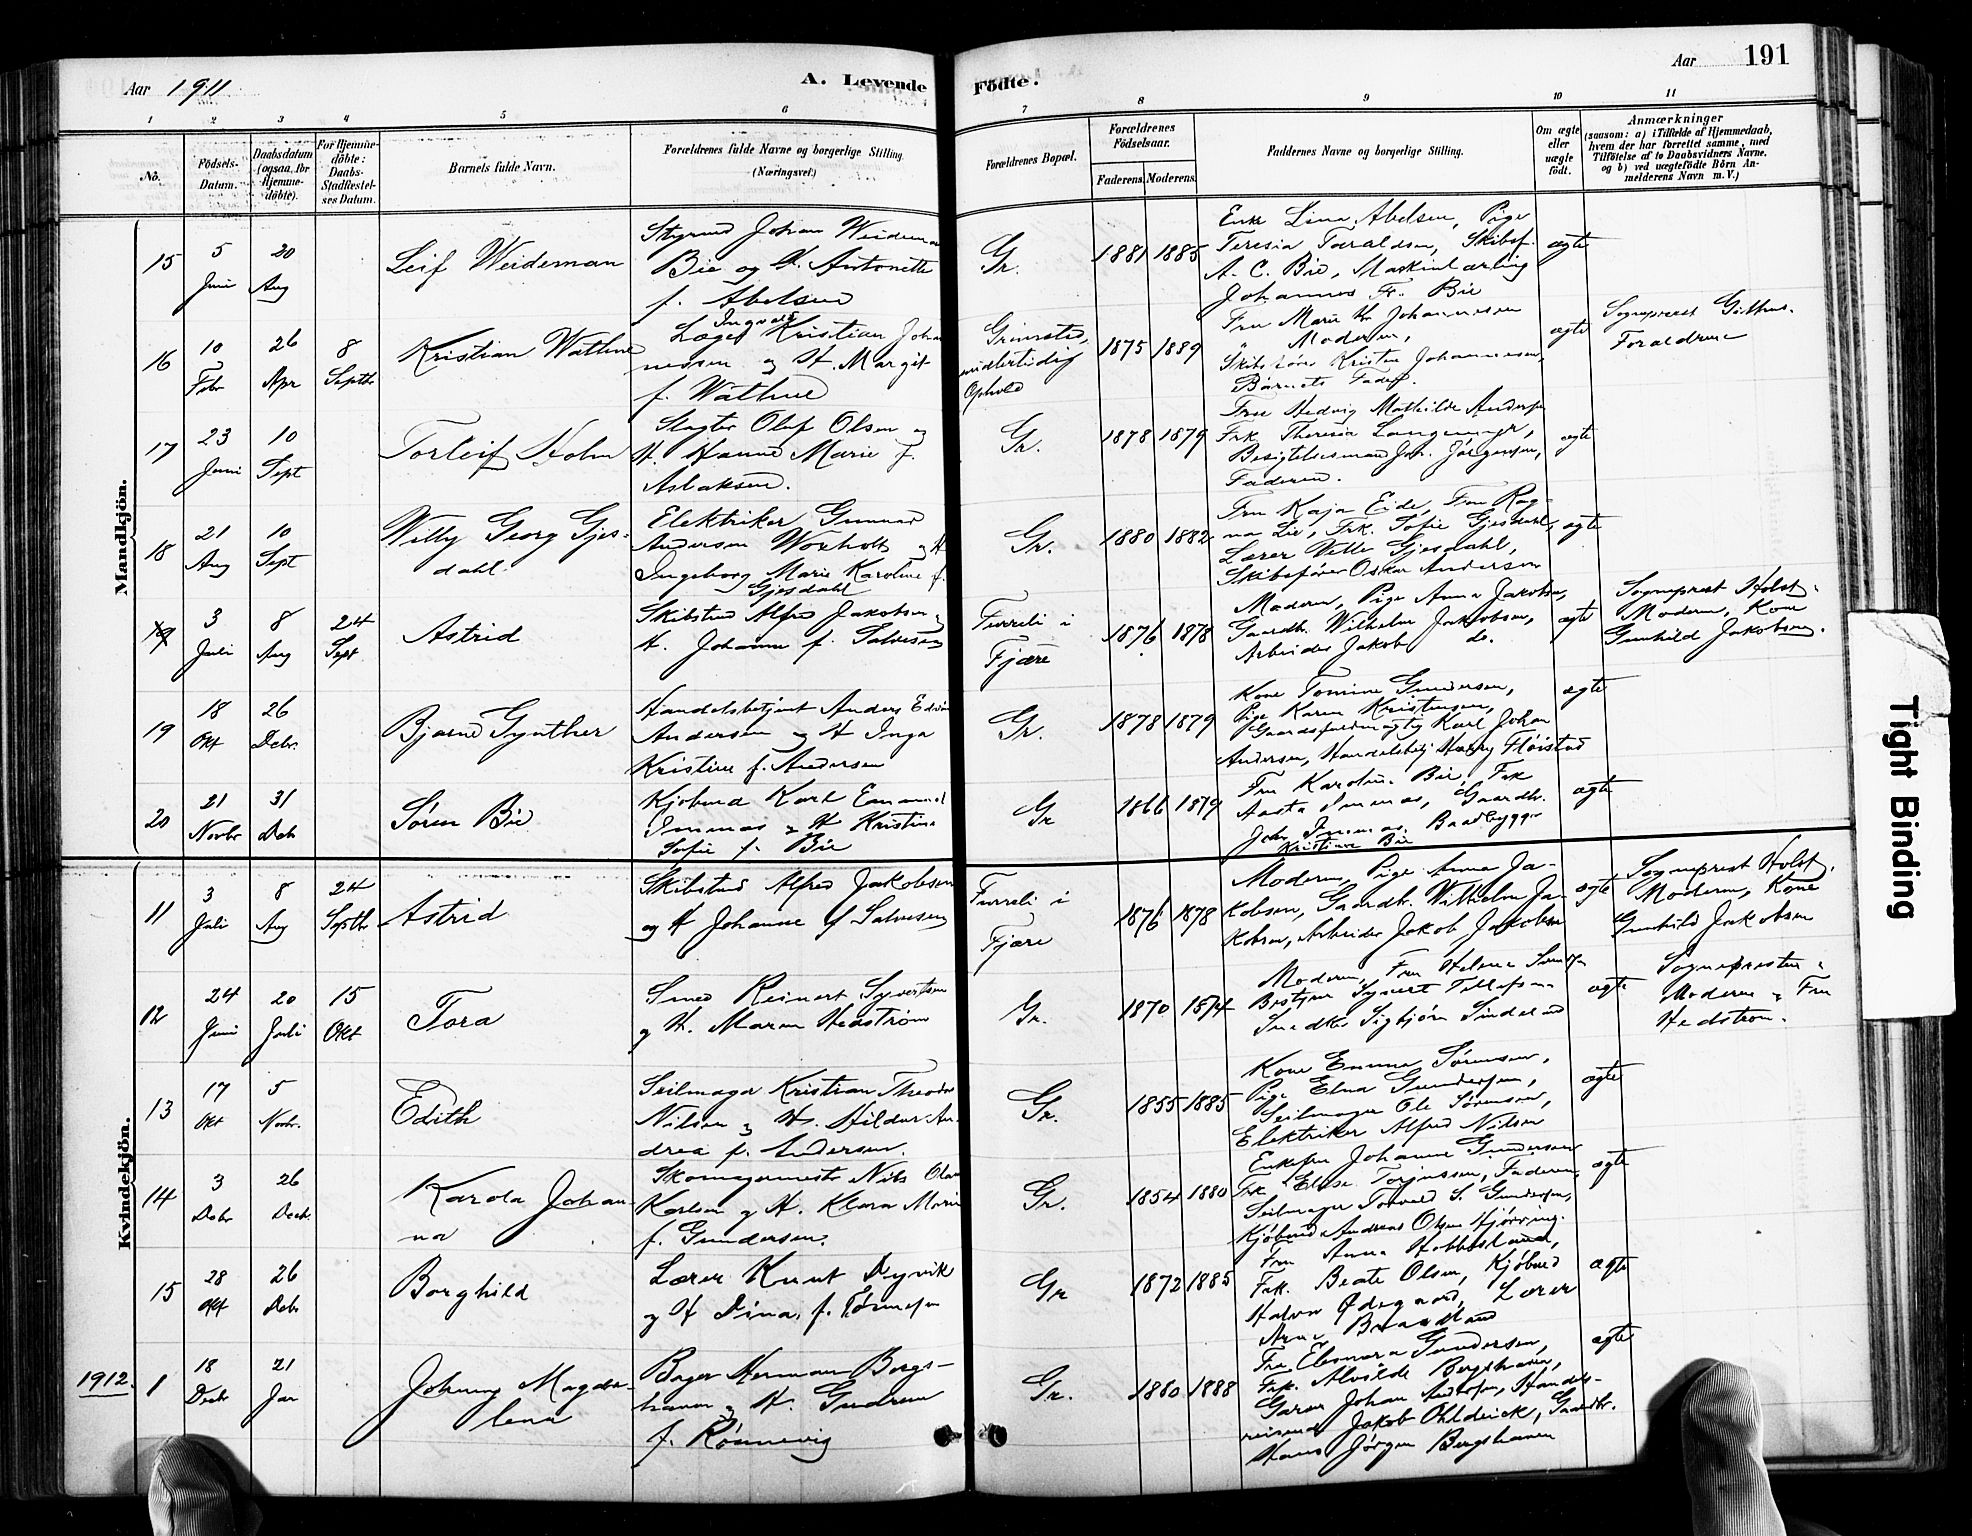 Aar 1911
A. Levende
Födte.
Aar 191
1 2 3 4 5 6 7 8 9 10 11
No.
Födsels-
Datum.
Daabsdatum
(ogsaa for
Hjemme-
döbte).
For Hjemme-
döbte:
Daabs-
Stadfæstel-
ses Datum.
Barnets fulde Navn.
Forældrenes fulde Navne og borgerlige Stilling
(Næringsvei.)
Forældrenes Bopæl.
Forældrenes
Födselsaar.
Faderens. Moderens.
Faddernes Navne og borgerlige Stilling.
Om ægte
eller
uægte
født.
Anmærkninger
(saasom: a) i Tilfælde af Hjemmedaab,
hvem der har forrettet samme, med
Tilföielse af to Daabsvidners Navne,
og b) ved uægtefödte Börn An-
melderens Navn m. V.)
Mandkjön.
15
5
Juni
20
Aug
Leif Weideman
Johan Weideman
Bie og H. Antonette
f. Abelsen
Gr.
1881 1885
Enke Lina Abelsen, Pige
Teresia Taraldsen, Skibsf.
A. C. Bie, Maskinlærling
Johannes Fr. Bie
ægte
16
10
Febr
26
Apr
8
Septbr
Kristian Wathne
Læge Ingvald Kristian Johan
nessen og H. Margit
f. Wathne
Grimstad,
midlertidig
Ophold
1875 1889
Fru Marie Johannesen
Moderen,
Kristen Johannesen,
Barnets Fader.
ægte
Sogneprest
Forældrene
17
23
Juni
10
Sept
Torleif Holm
Slagter Oluf Olsen og
H. Hanne Marie f.
Aslaksen.
Gr.
1878 1879
Fru Hedvig Mathilde Andersen
Frk Theresia
Besigtelsesmand Joh. Jörgensen,
Faderen.
ægte
18
21
Aug
10
Sept
Willy Georg Gjes-
dahl.
Elektriker Gunnar
Andersen Woxholt og H
Ingeborg Marie Karoline f.
Gjesdahl
Gr.
1880 1882
Fru Kaja Eide, Fru Rag-
na Lie, Frk. Sofie Gjesdahl,
Lærer Gjesdahl,
Skibsförer Oskar Andersen
ægte
19
3
Juli
8
Aug
24
Sept
Astrid
Skibstmd Alfred Jakobsen
H. Johanne f. Salvesen
Furreli i
Fjære
1876 1878
Moderen, Pige Anna Jakobsen,
Gaardb. Wilhelm Jakobsen,
Arbeider Jakob do.
ægte
Sogneprest Holst.
Moderen, Kone
Gunhild Jakobsen.
19
18
Okt
26
Debr.
Bjarne Gynther
Handelsbetjent Anders Edvin
Andersen og H Inga
Kristine f. Andersen
Gr.
1878 1879
Kone Tomine Gundersen,
Pige Karen Kristensen,
Gaardsfuldmægtig Karl Johan
Andersen, Handelsbetj. Harry Flöistad
ægte
20
21
Novbr
31
Deb
Sören Bie
Kjöbmd Karl Emanuel
Immas og H Kristine
Sofie f. Bie
Gr
1866 1879
Fru Karoline Bie, Frk
Aasta Immas, Gaardb.
John Immas, Baadbygger
Kristian Bie
ægte
Kvindekjön.
11
3
Juli
8
Aug
24
Septbr
Astrid
Skibstmd Alfred Jakobsen
og H Johanne f Salvesen
Furreli i
Fjære
1876 1878
Moderen, Pige Anna Ja-
kobsen, Gaardb. Wilhelm Ja-
kobsen, Arbeider Jakob Jakobsen
ægte
Sogneprest Holst.
Moderen, Kone
Gunhild Jakobsen
12
24
Juni
20
Juli
15
Okt
Tora
Smed Reinert Syvertsen
og H. Maren Hedström
Gr.
1870 1874
Moderen, Fru Helene
Bestyrer Syvert Tellefsen
Snedker Sigbjörn
ægte
Sognepresten.
Moderen og Fru
Hedström.
13
17
Okt
5
Novbr.
Edith
Seilmager Kristian Theodor
Nilsen og H. Hildur An-
drea f. Andersen.
Gr.
1855 1885
Kone Emma Sörensen,
Pige Elna Gundersen,
Seilmager Ole Sörensen,
Elektriker Alfred Nilsen
ægte
14
3
Debr
26
Decb.
Karola Johan
na
Skomagermester Nils Olaus
Karlsen og H. Klara Marie
f. Gundersen.
Gr.
1854 1880
Enkefru Johanne Gundersen
Frk Elise Torjussen, Faderen,
Seilmager Torvald S. Gundersen,
Kjöbmd Andreas Olsen Hjörring.
ægte
15
28
Okt
26
Debr
Borghild
Lærer Knut Dyvik
og H Dina, f. Tönnesen
Gr
1872 1885
Fru Anna
Frk. Beate Olsen, Kjöbmd
Halvor Ödegaard, Lærer
ægte
1912.
1
18
Decbr
21
Jan
Johnny Magda-
lena
Bager Herman Bergs-
haven og H. Gudrun
f. Rönnevig
Gr.
1880 1888
Fru Eleonora Gundersen,
Frk. Alvilde Bergshaven,
Garver Johan Andersen, Handels-
reisende Jakob Ohldieck, Gaardbr.
Hans Jörgen Bergshaven
ægte
Tight Binding